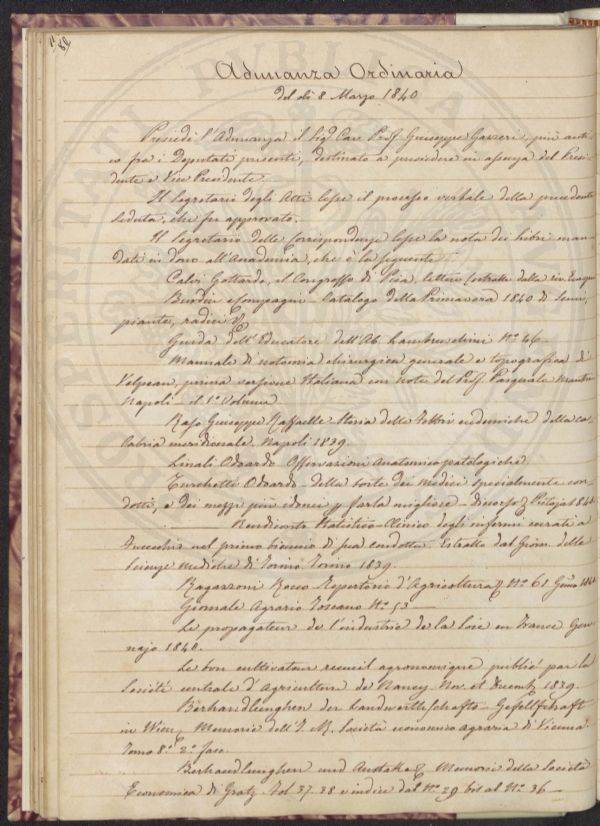 82
Adunanza Ordinaria
del dì 8 Marzo 1840
Presiedè l'Adunanza il Sigr Cav. Prof. Giuseppe Gazzeri, più anti-
co fra i Deputati presenti, destinato a presiedere in assenza del Presi-
dente e Vice Presidente.
Il Segretario degli Atti lesse il processo verbale della precedente
Seduta, che fu approvato.
Il Segretario delle Corrispondenze lesse la nota dei libri man-
dati in dono all'Accademia, che è la seguente.
Calvi Gottardo, il Congresso di Pisa, lettere estratte dalla riv. Europ
Burdin e Compagni - Catalogo della Primavera 1840 di Semi,
piante, radici &
Guida dell'Educatore dell'Ab. Lambruschini No 46 -
Manuale di notomia chirurgica generale e topografica di
Velpeau, prima versione Italiana con note del Prof. Pasquale Manfrè
Napoli - il 1o Volume
Raso Giuseppe Raffaelle Storia delle Febbri endemiche della Ca-
labria meridionale. Napoli 1839.
Linoli Odoardo Osservazioni Anatomico patologiche.
Turchetti Odoardo - della sorte dei Medici specialmente con-
dotti, e dei mezzi più idonei p farla migliore - discorso, Pistoja 1840
Rendiconto Statistico-Clinico degli infermi curati a
Fucecchio nel primo biennio di sua condotta. Estratto dal Giorn. delle
Scienze Mediche di Torino Torino 1839.
Ragazzoni Rocco Repertorio d'Agricoltura & No 61 Gen. 1840
Giornale Agrario Toscano No 53 -
Le propagateur de l'industrie de la Soie en France Gen-
najo 1840.
Le bon cultivateur recueil agronomique publié par la
Société centrale d'Agriculture de Nancy. Nov. et Decemb. 1839.
Berhandlunghen der Landwirthschafts-Gesellschaft
in Wien, Memorie dell'I. R. Società economico agraria di Vienna
Tomo 8o 2o fasc.
Berhandlunghen und &, Memorie della Società
Economica di Gratz. Vol 37.38 e indice dal No 29 bis al No 36 -